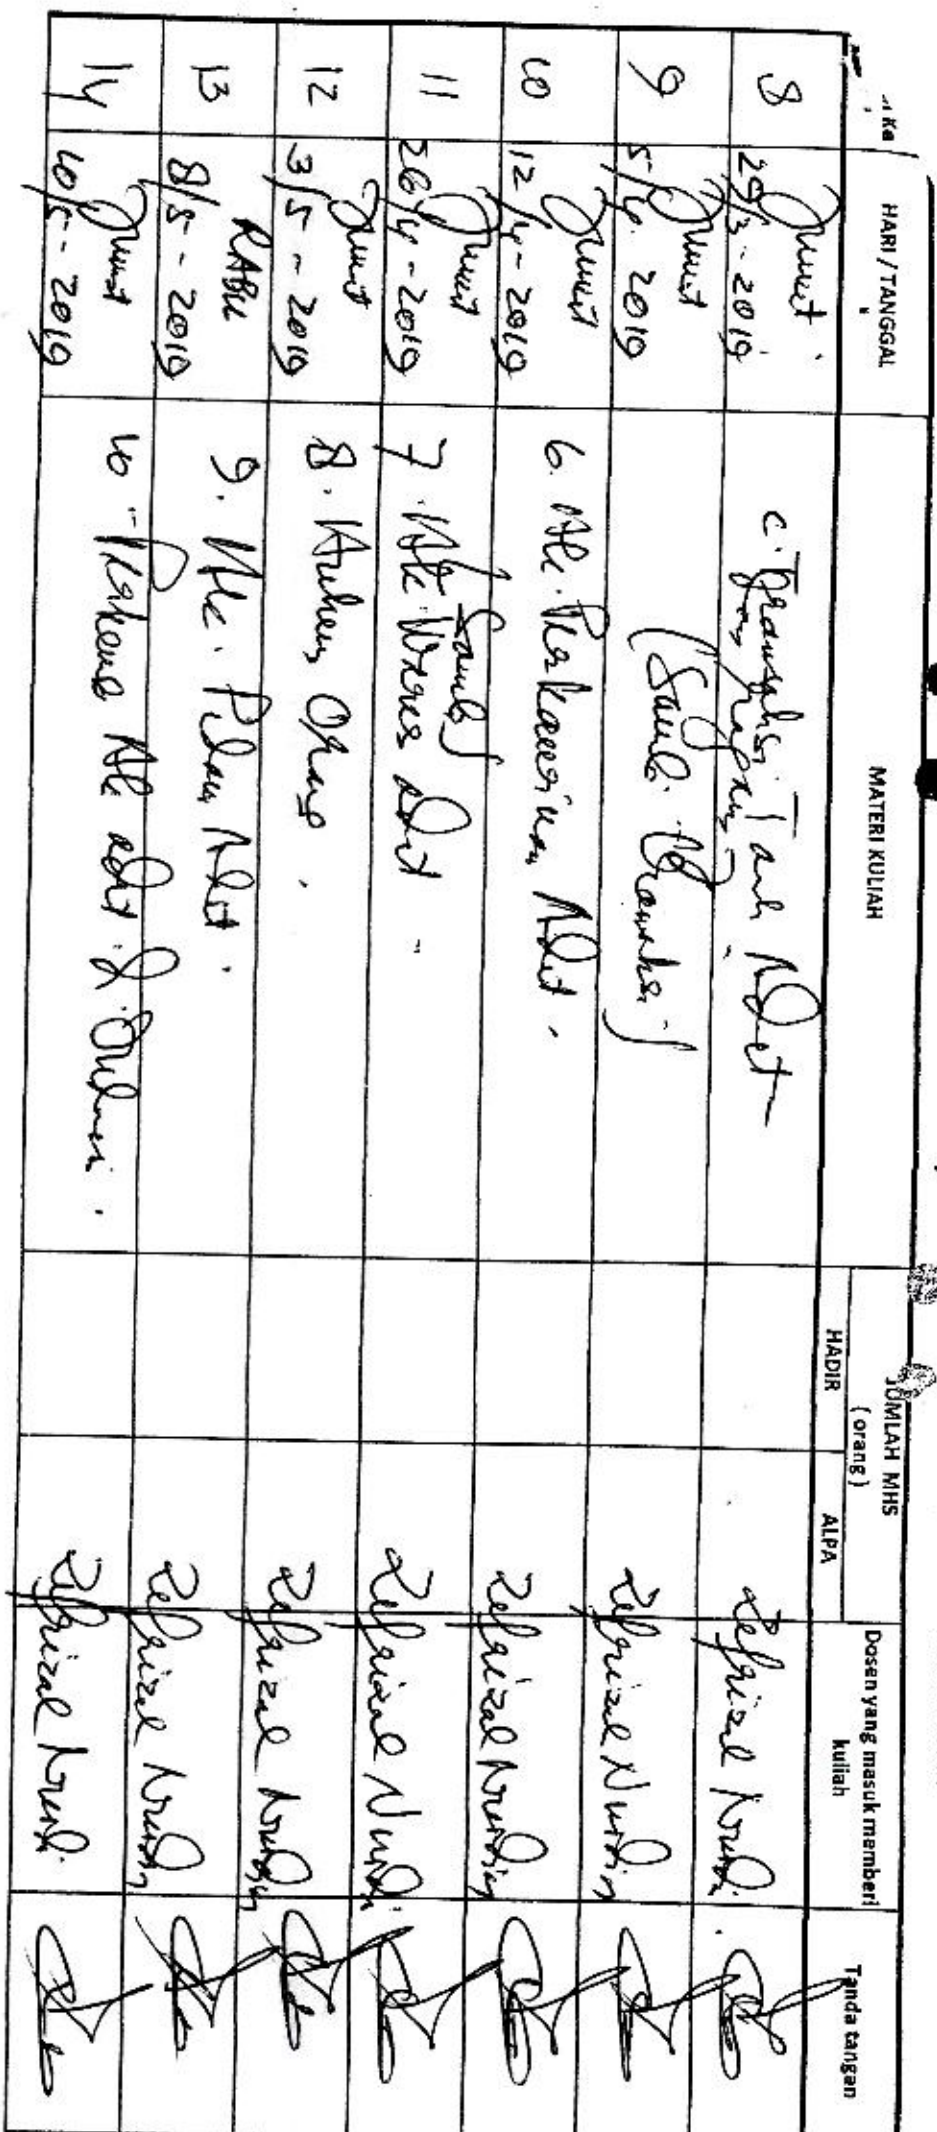 Ke
HARI / TANGGAL
MATERI KULIAH
JUMLAH MHS
( orang )
HADIR
ALPA
Dosen yang masuk memberi
kuliah
Tanda tangan
8
Jumat
29/3-2019
c. Transaksi Tanah Adat
Zefrizal Nurdin
9
Jumat
5/4-2019
Zefrizal Nurdin
10
Jumat
12/4-2019
6. Hk. Perkawinan Adat.
Zefrizal Nurdin
11
Jumat
26/4-2019
7. Hk. Waris adat.
Zefrizal Nurdin
12
Jumat
3/5-2019
8. Hukum Orang.
Zefrizal Nurdin
13
RABU
8/5-2019
9. Hk. Pidana Adat.
Zefrizal Nurdin
14
Jumat
10/5-2019
10. Hk adat
Zefrizal Nurdin